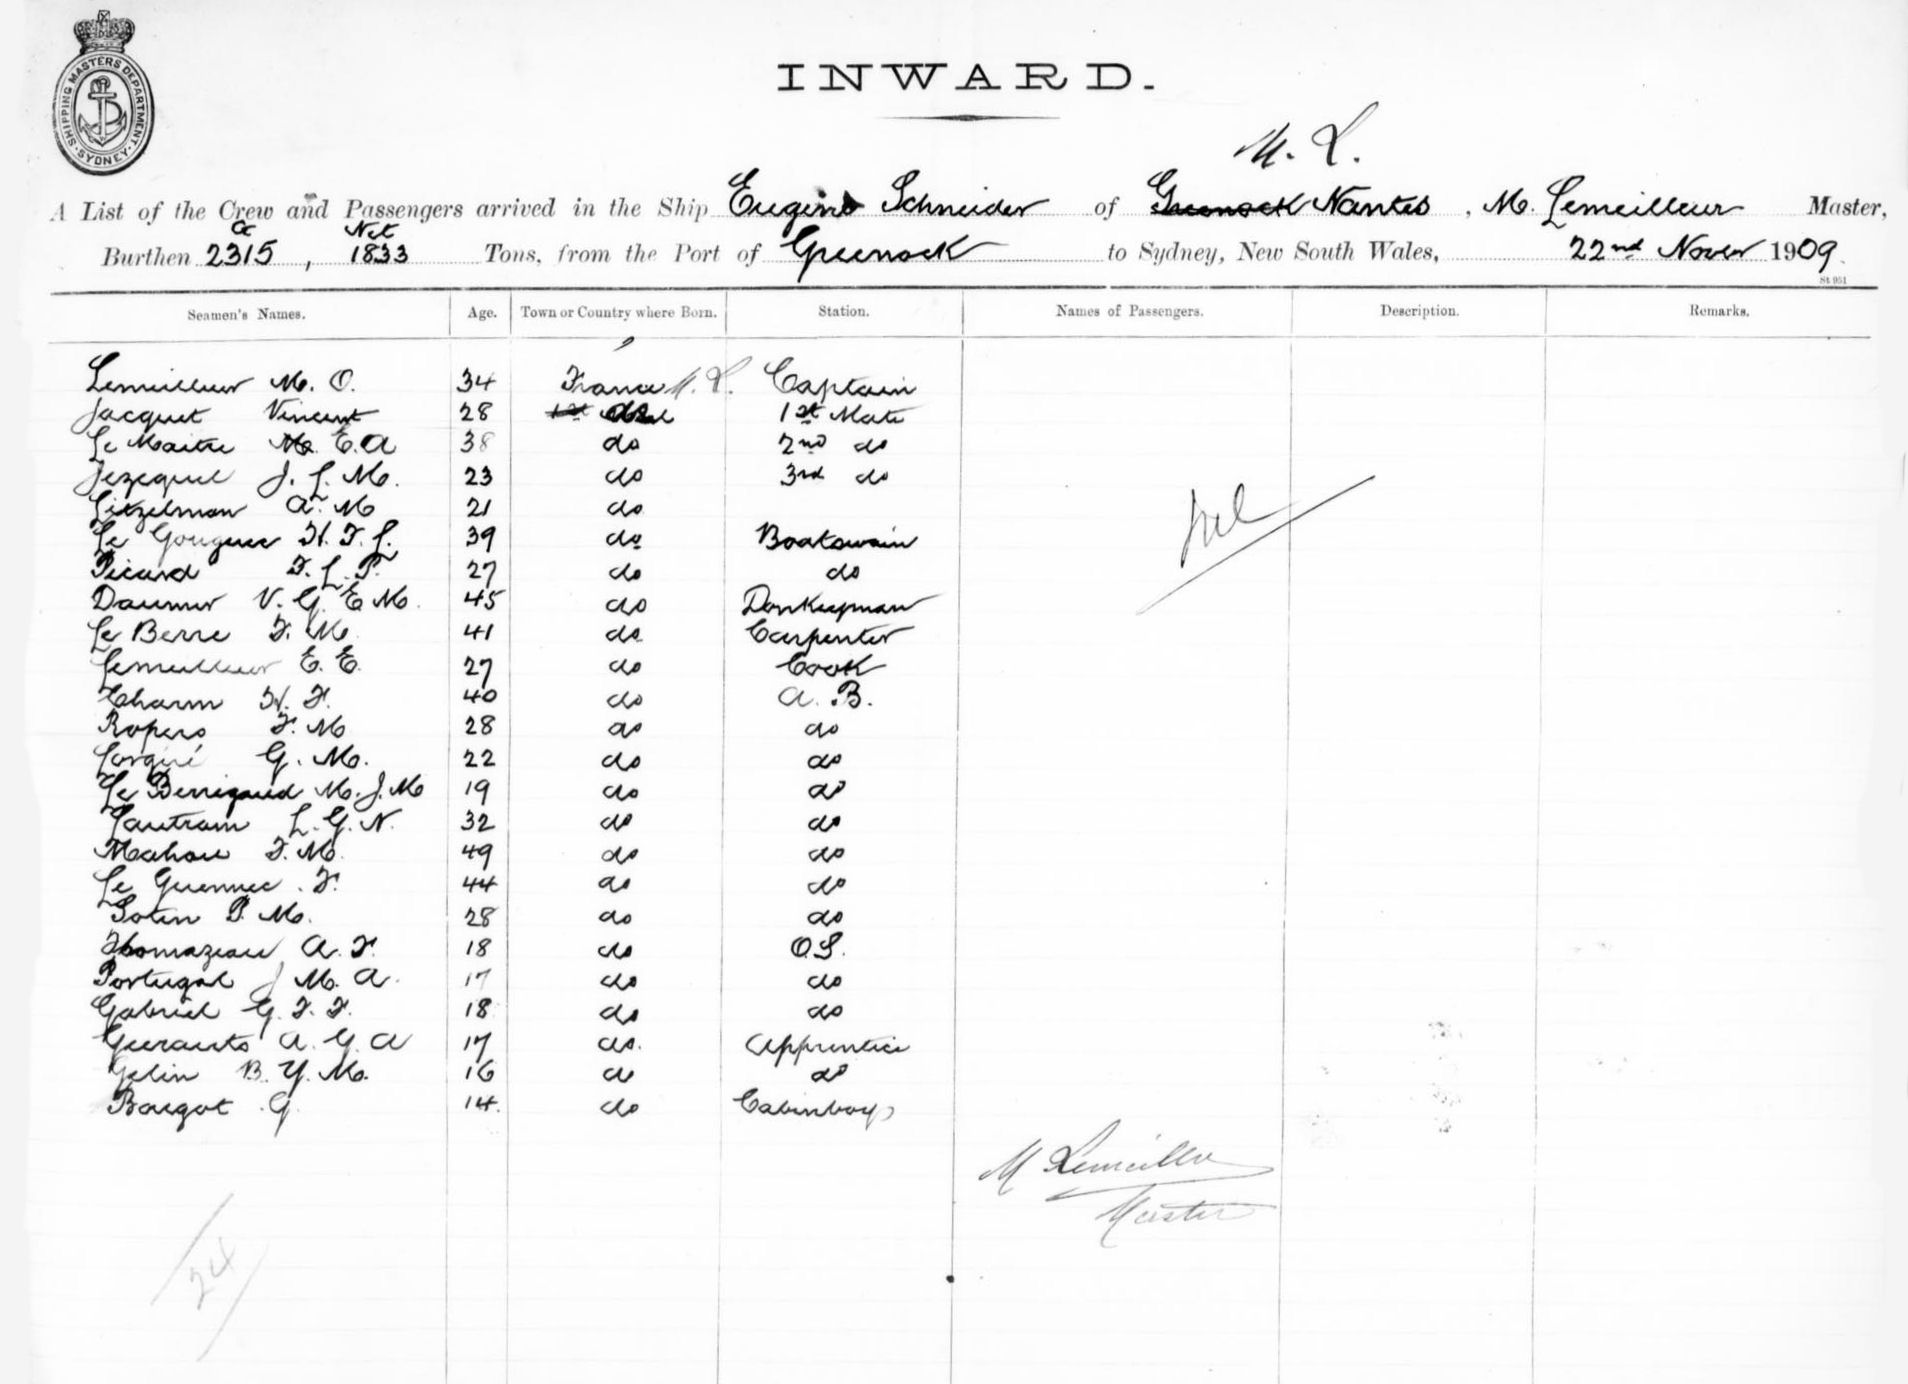 SHIPPING MASTERS DEPARTMENT. SYDNEY.
INWARD.
M. L.
A List of the Crew and Passengers arrived in the Ship Eugene Schneider of Greenock Nantes, M. Lemeilleur Master,
G Net
Burthen 2315, 1833 Tons, from the Port of Greenock to Sydney, New South Wales, 22nd Nover 1909
St 951
Seamen's Names. Age. Town or Country where Born. Station. Names of Passengers. Description. Remarks.
Lemeilleur M. O. 34 France M. L. Captain
Jacquet Vincent 28 do 1st Mate
Le Maitre M. E. A 38 do 2nd do
Jezequel J. L. M. 23 do 3rd do
Litzelman A. M 21 do
Le Gouguec H. F. L. 39 do Boatswain
Picard F. L. P. 27 do do
Nil
Daumer V. G. E. M. 45 do Donkeyman
Le Berre F. M. 41 do Carpenter
Lemeilleur E. E. 27 do Cook
Charm H. F. 40 do A. B.
Ropers F. M 28 do do
G. M. 22 do do
Le M. J. M 19 do do
Lautram L. G. N. 32 do do
Mahou F. M. 49 do do
Le Guennec F. 44 do do
Sotin P. M. 28 do do
Thomazeau A. F. 18 do O.S.
Portugal J M. A. 17 do do
Gabriel G. F. F. 18 do do
A. G. A 17 do. Apprentice
Gelin B. Y. M. 16 do do
Bougot G. 14. do Cabinboy
M Lemeilleur
Master
24